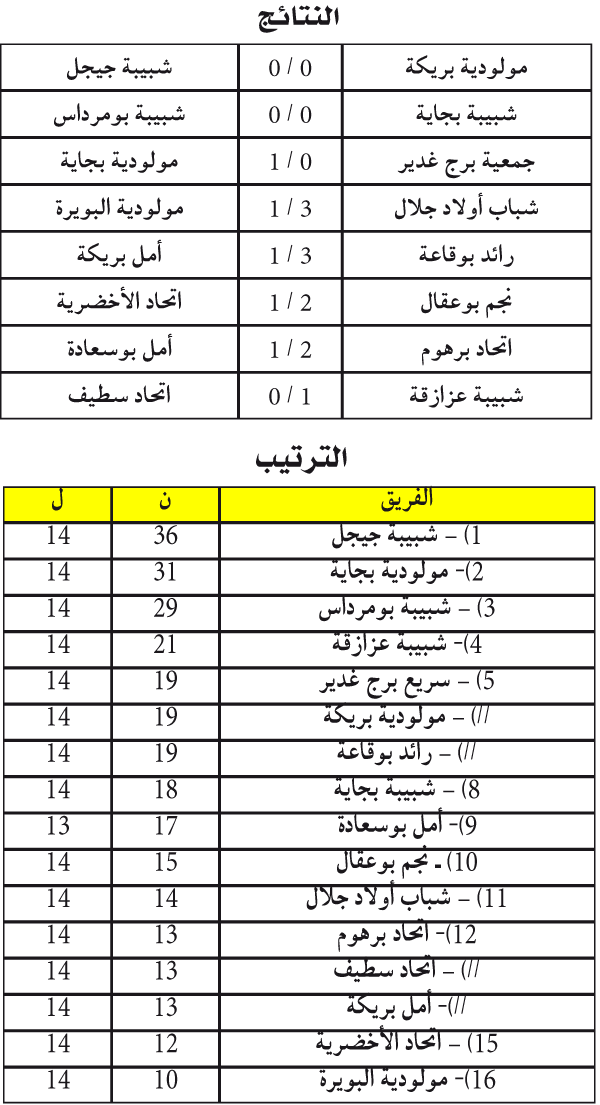 النتائج
مولودية بريكة 0 / 0 شبيبة جيجل
شبيبة بجاية 0 / 0 شبيبة بومرداس
جمعية برج غدير 1 / 0 مولودية بجاية
شباب أولاد جلال 1 / 3 مولودية البويرة
رائد بوقاعة 1 / 3 أمل بريكة
نجم بوعقال 1 / 2 اتحاد الأخضرية
اتحاد برهوم 1 / 2 أمل بوسعادة
شبيبة عزازقة 0 / 1 اتحاد سطيف
الترتيب
الفريق ن ل
1) – شبيبة جيجل 36 14
2)- مولودية بجاية 31 14
3) – شبيبة بومرداس 29 14
4)- شبيبة عزازقة 21 14
5) – سريع برج غدير 19 14
//) – مولودية بريكة 19 14
//) – رائد بوقاعة 19 14
8) – شبيبة بجاية 18 14
9)- أمل بوسعادة 17 13
10) ـ نجم بوعقال 15 14
11) – شباب أولاد جلال 14 14
12)- اتحاد برهوم 13 14
//) – اتحاد سطيف 13 14
//)- أمل بريكة 13 14
15) – اتحاد الأخضرية 12 14
16)- مولودية البويرة 10 14